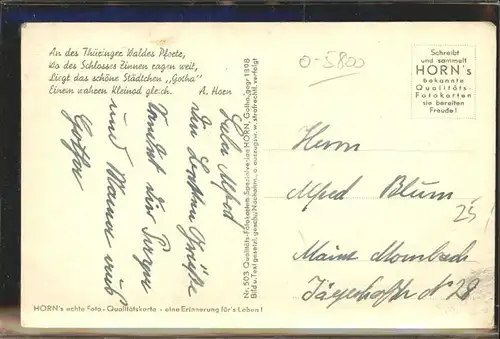 An des Thüringer Waldes Pforte,
Wo des Schlosses Zinnen ragen weit,
Liegt das schöne Städtchen „Gotha"
Einem wahren Kleinod gleich.
A. Horn
Lieber Alfred
die besten Grüße
sendet dir
und Mama und
Gotha
Nr. 503 Qualitäts-Fotokarten-Spezialverlag HORN, Gotha, gegr. 1898
Bild u. Text gesetzl. gesch. Nachahm. o. auszugsw. w. strafrechtl. verfolgt
0-5800
Schreibt
und sammelt
HORN's
bekannte
Qualitäts-
Fotokarten
sie bereiten
Freude!
Herrn
Alfred Blum
25
Mainz Mombach
N° 28
HORN's echte Foto-Qualitätskarte - eine Erinnerung für's Leben!